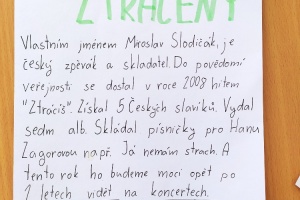 ZTRACENÝ
Vlastním jménem Miroslav Slodičák, je
český zpěvák a skladatel. Do povědomí
veřejnosti se dostal v roce 2008 hitem
"Ztrácíš". Získal 5 Českých slavíků. Vydal
sedm alb. Skládal písničky pro Hanu
Zagorovou např. Já nemám strach. A
tento rok ho budeme moci opět po
2 letech vidět na koncertech.